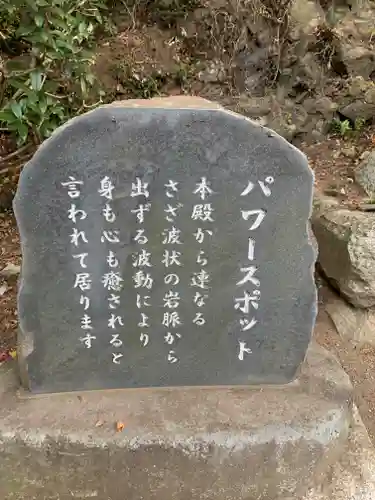 パワースポット
本殿から連なる
さざ波状の岩脈から
出ずる波動により
身も心も癒されると
言われて居ります